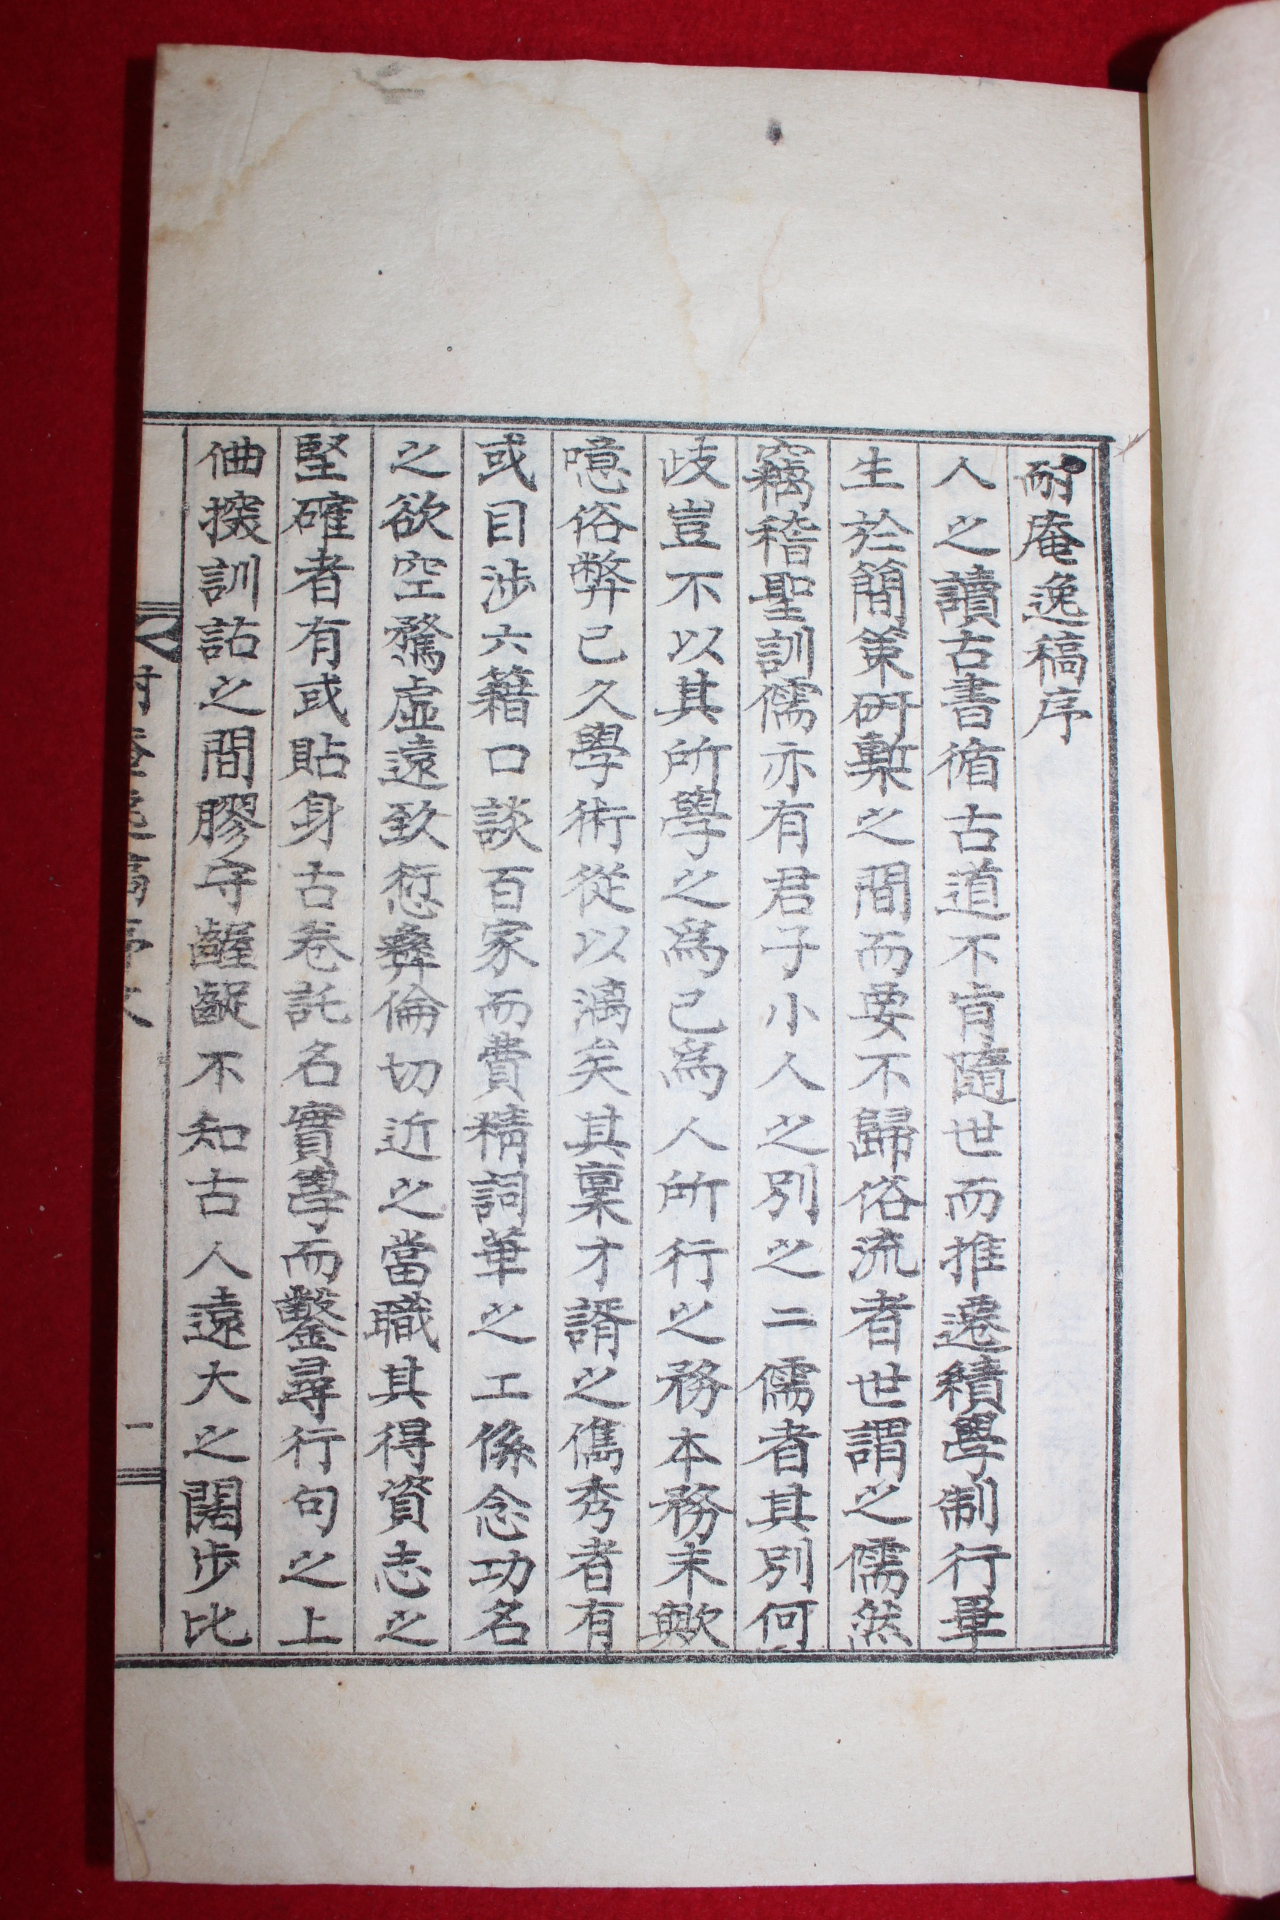 耐庵逸稿序
人之讀古書循古道不肯隨世而推遷績學制行畢
生於簡策硏槧之間而要不歸俗流者世謂之儒然
竊稽聖訓儒亦有君子小人之別之二儒者其別何
歧豈不以其所學之爲己爲人所行之務本務末歟
噫俗弊已久學術從以漓矣其稟才諝之儁秀者有
或目涉六籍口談百家而費精詞華之工係念功名
之欲空騖虛遠致愆彝倫切近之當職其得資志之
堅確者有或貼身古卷託名實學而鑿尋行句之上
曲揬訓詁之間膠守齷齪不知古人遠大之闊步比
耐菴逸稿序文
一